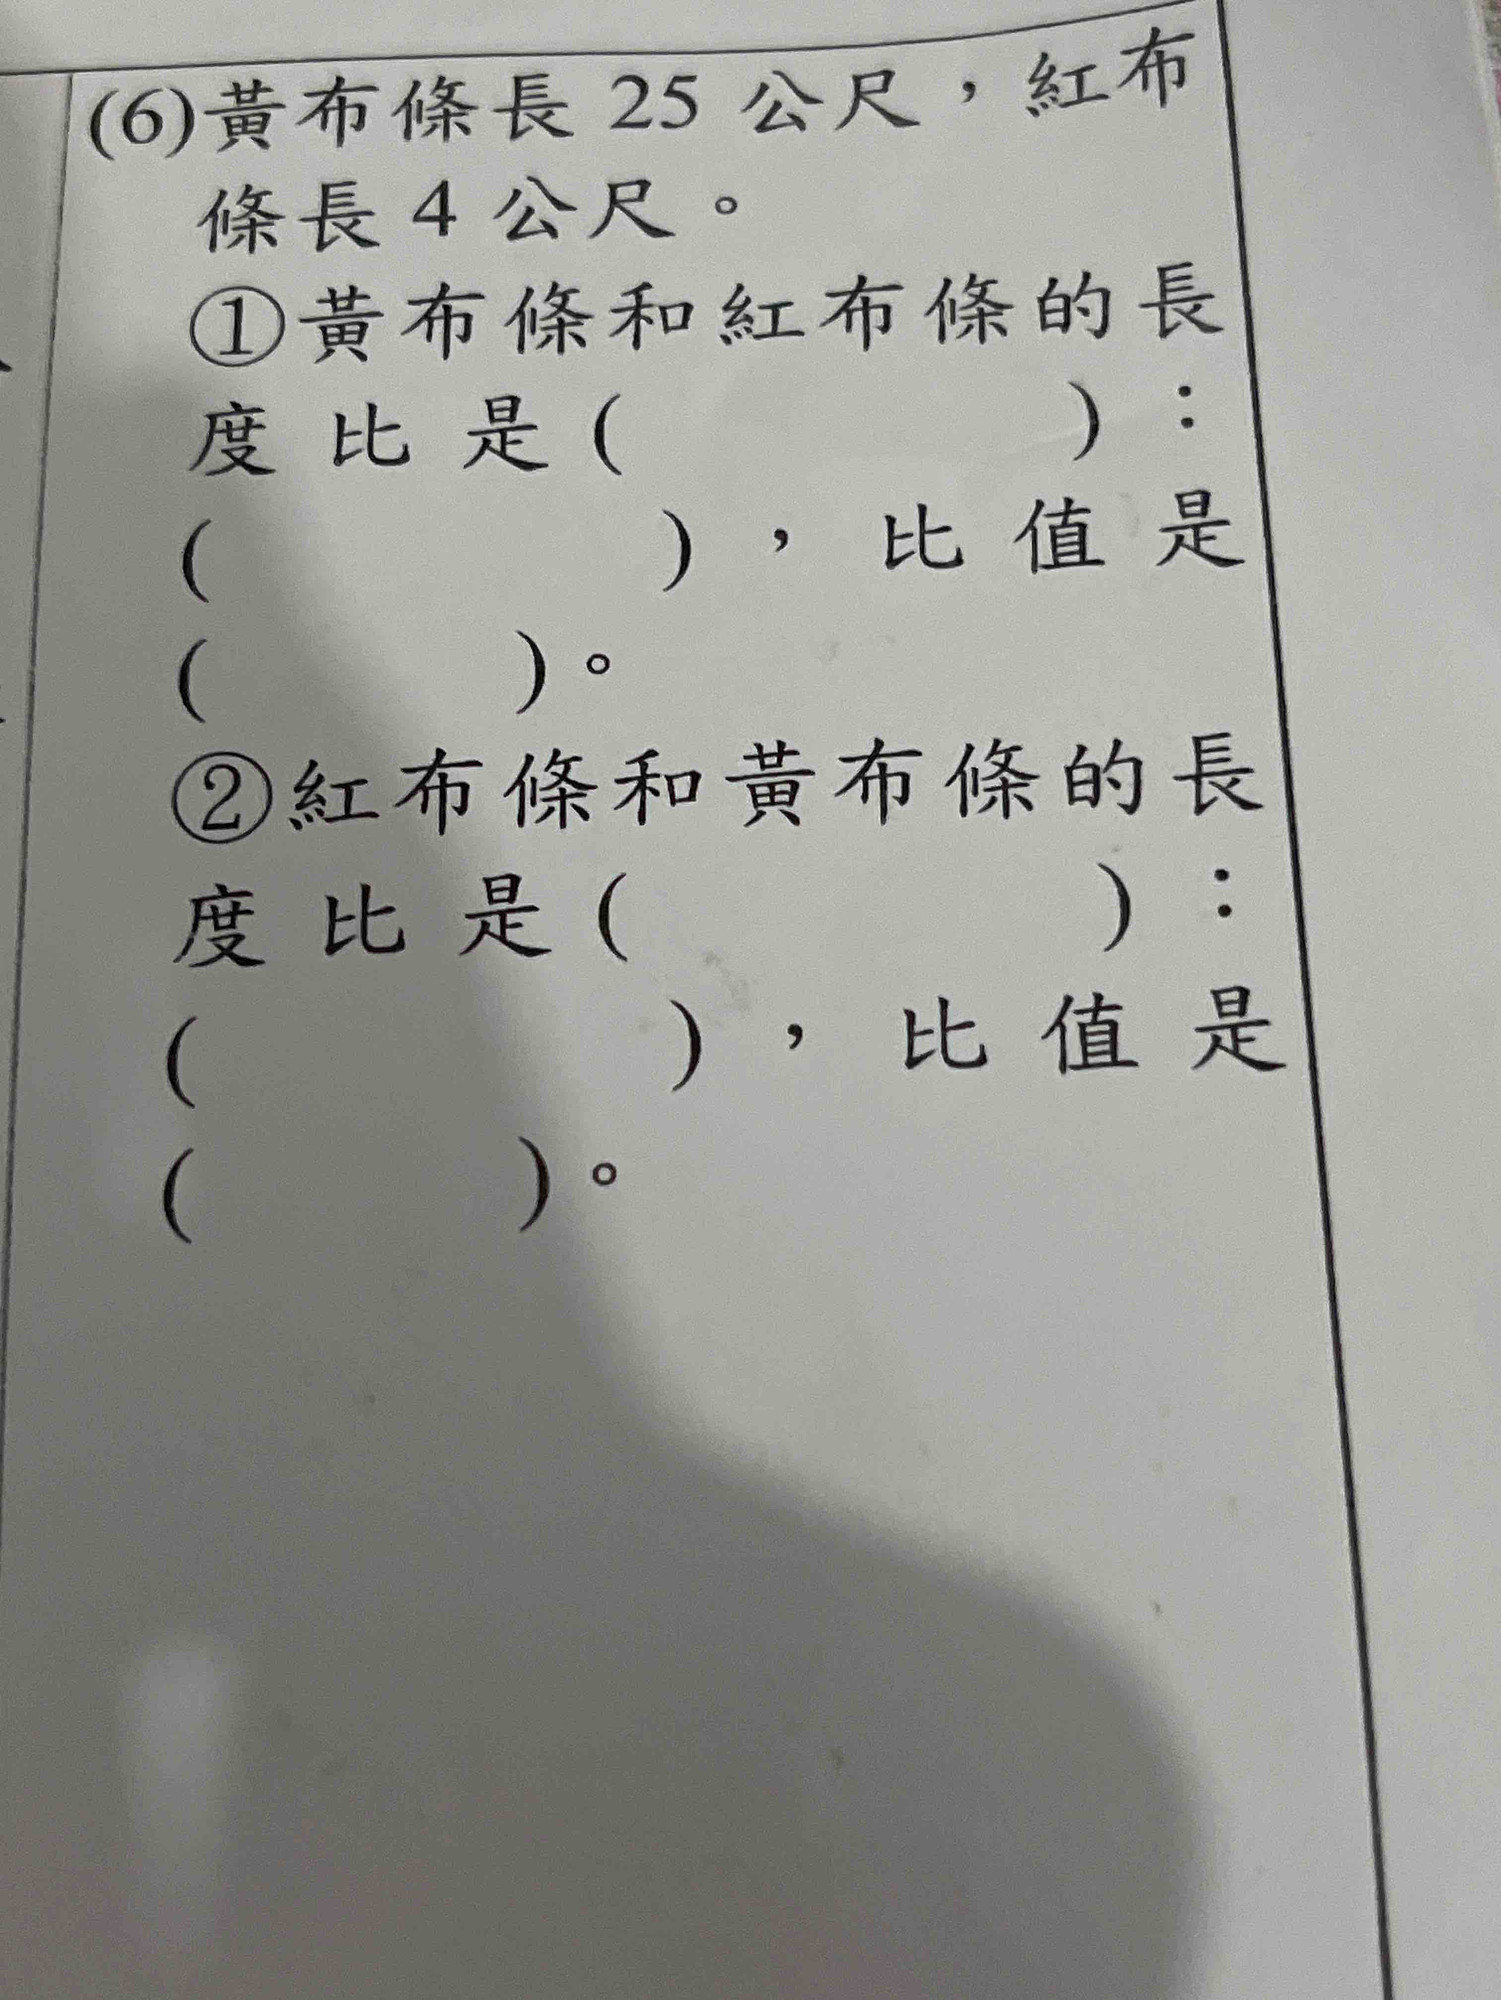 (6)黃布條長 25 公尺，紅布
條長 4 公尺。
①黃布條和紅布條的長
度比是( )：
( )，比值是
( )。
②紅布條和黃布條的長
度比是( )：
( )，比值是
( )。